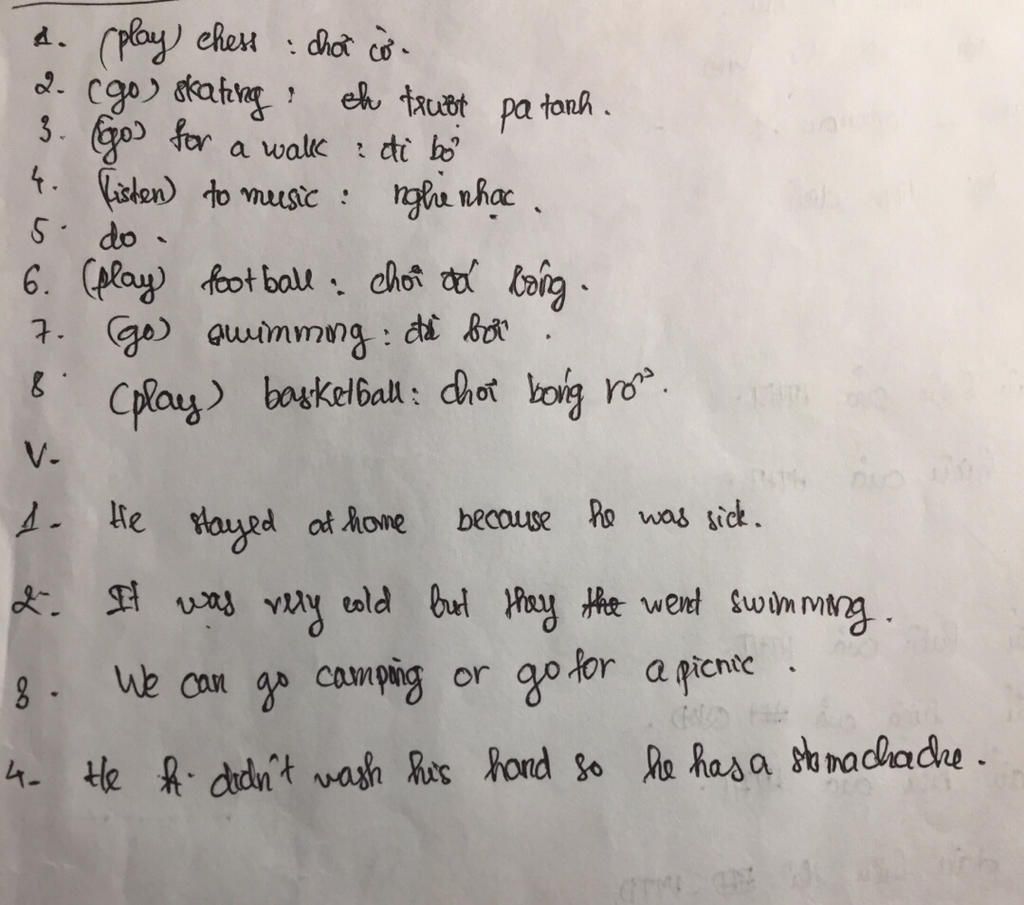 1. (play) chess : chơi cờ.
2- (go) skating : đi trượt pa tanh.
3. (go) for a walk : đi bộ
4. (listen) to music : nghe nhạc.
5. do.
6. (play) football : chơi đá bóng.
7. (go) swimming : đi bơi.
8. (play) basketball : chơi bóng rổ.
V-
1- He stayed at home because he was sick.
2-. It was very cold but they the went swimming.
3. We can go camping or go for a picnic.
4- He didn't wash his hand so he has a stomachache.